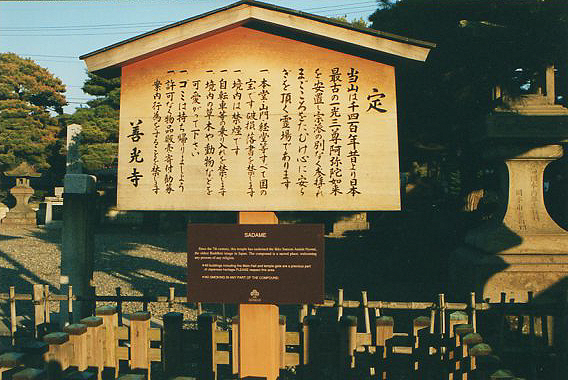 定
当山は千四百年の昔より日本
最古の一光三尊阿弥陀如来
を安置し宗派の別なく参拝れ
まごころをたむけ心に安ら
ぎを頂く霊場であります
一本堂山門経蔵等すべて国の
宝です破損落書を禁じます
一境内は禁煙です
一自転車等の乗り入れを禁じます
一境内の草木や動物などを
可愛がって下さい
一ゴミは持ち帰りましょう
一許可なき物品販売寄付勧募
案内行為などすることを禁じます
善光寺
SADAME
Since the 7th century, this temple has enshrined the Ikko Sanzon Amida Nyorai,
the oldest Buddhist image in Japan. The compound is a sacred place, welcoming
any person of any religion.
All buildings including the Main Hall and temple gate are a precious part
of Japanese heritage. PLEASE respect this area.
NO SMOKING IN ANY PART OF THE COMPOUND.